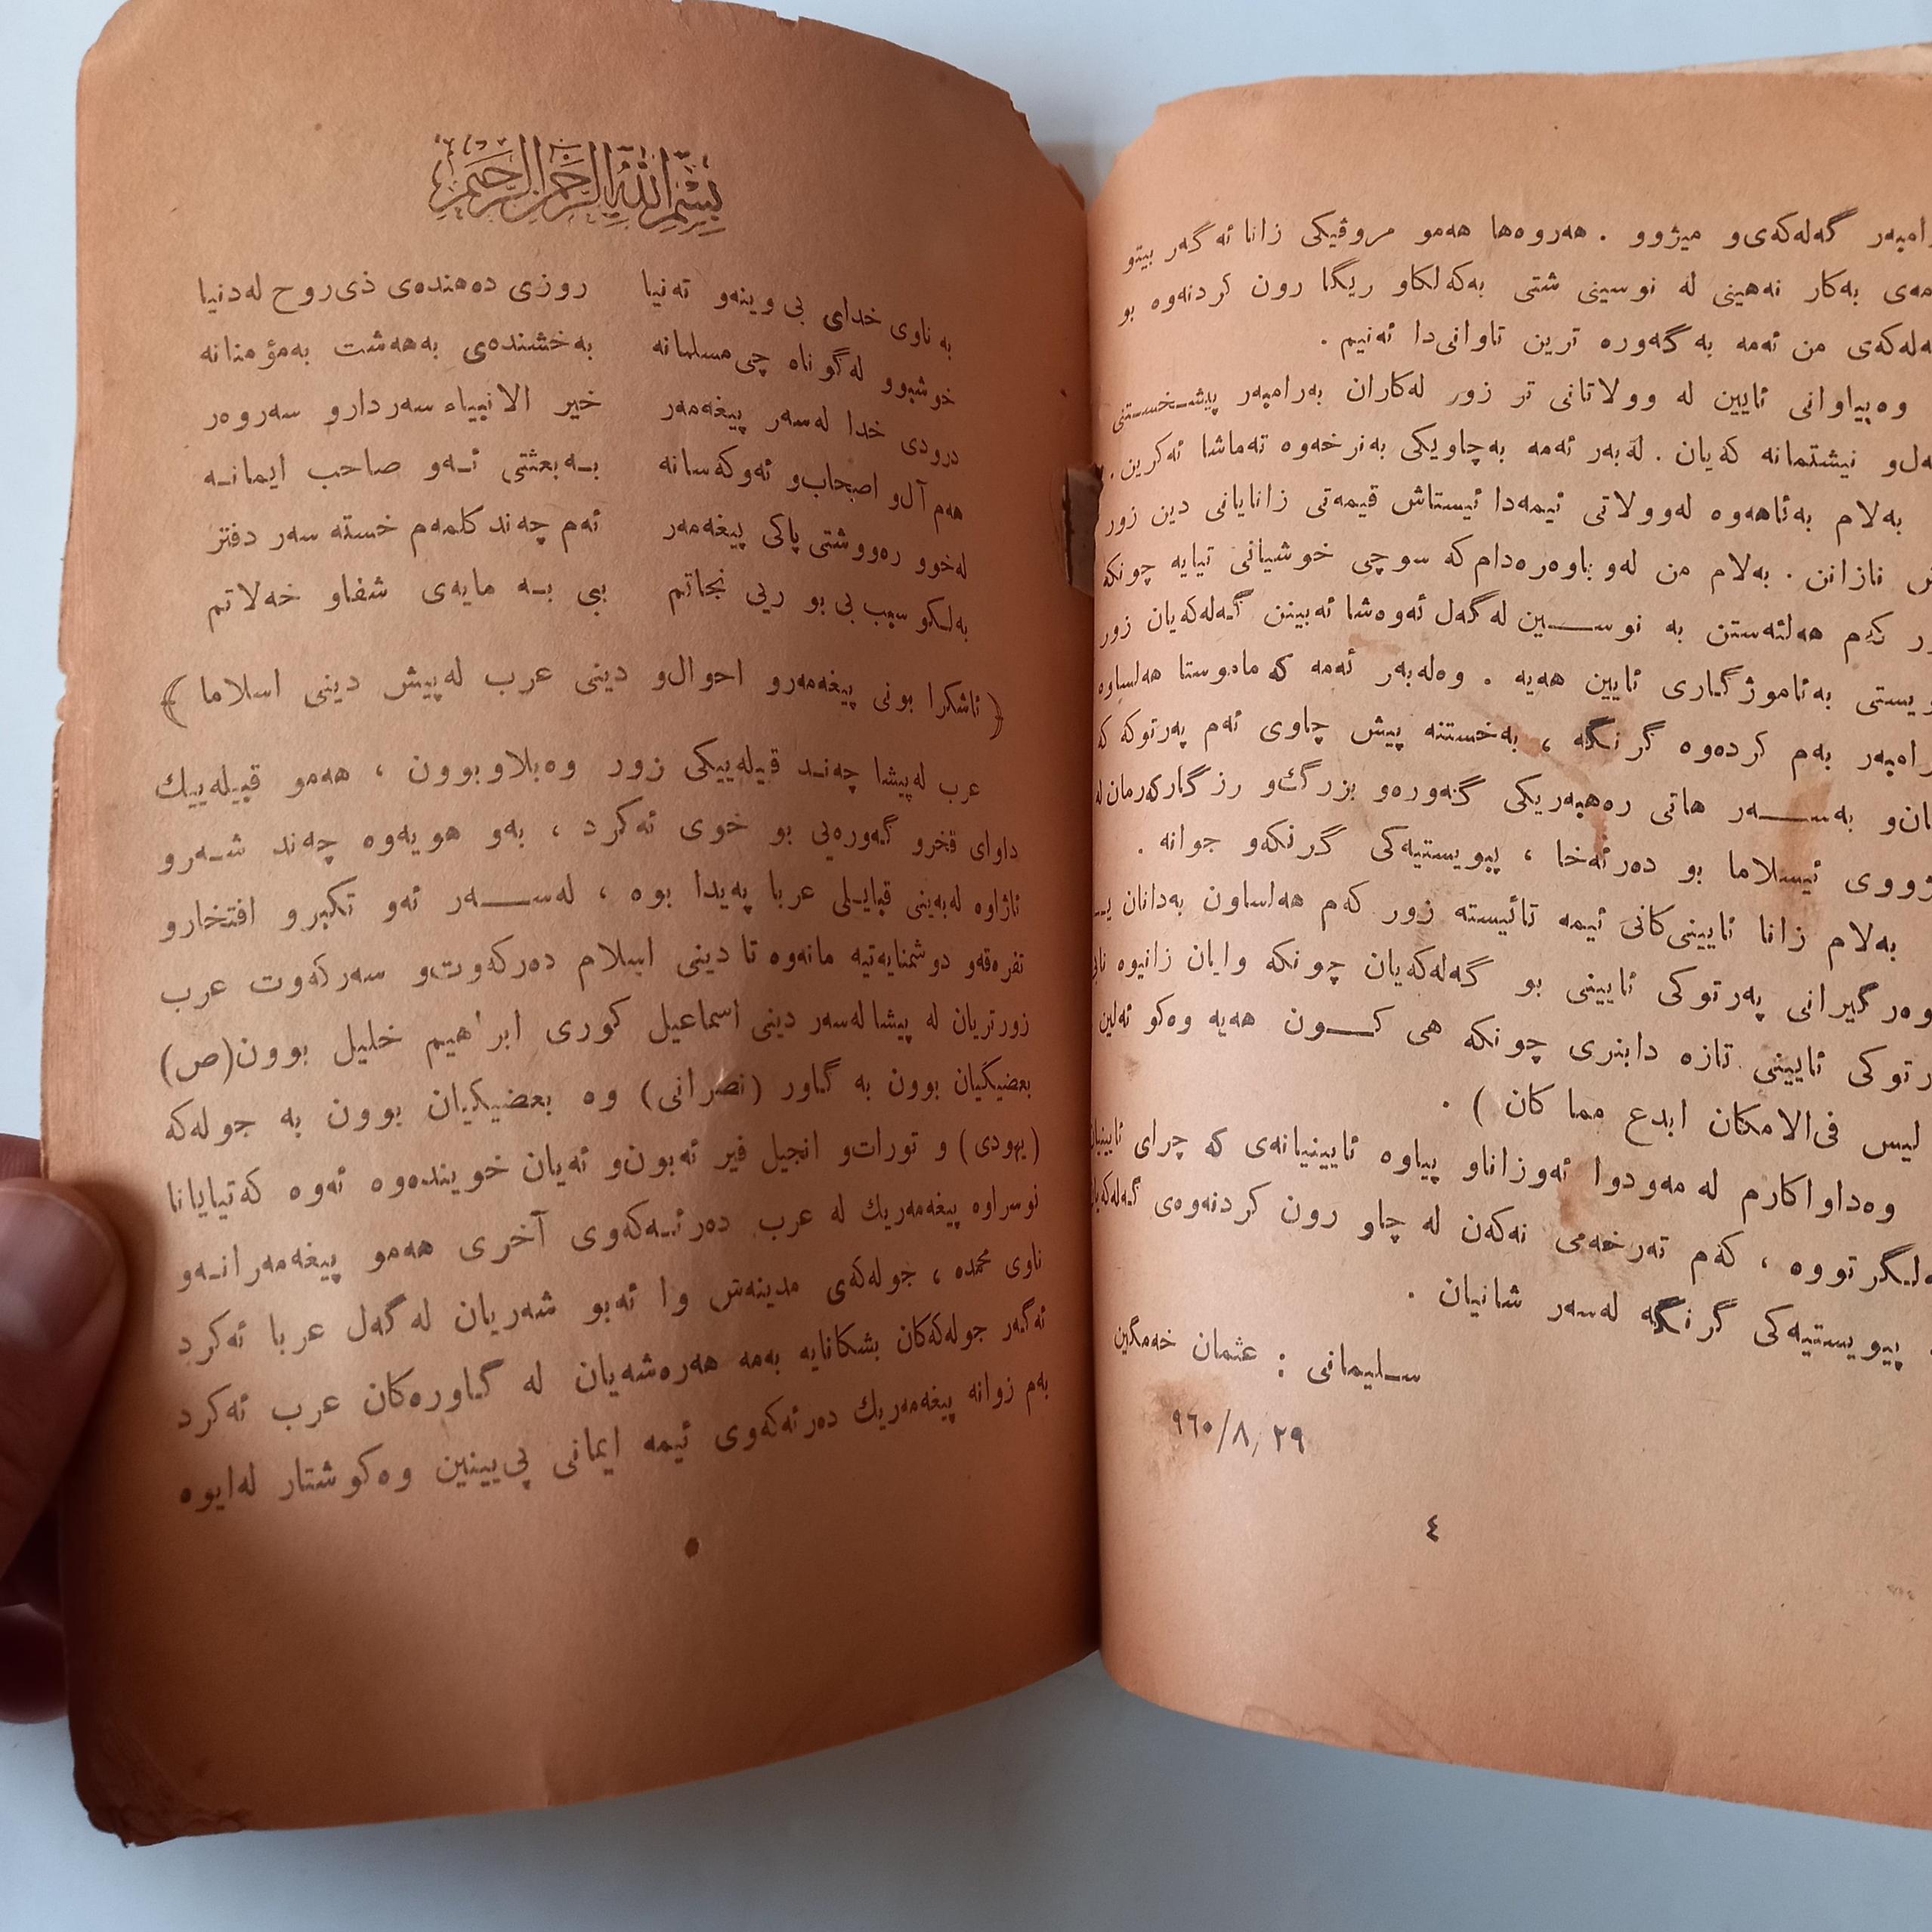 رامپەر گەلەکەی‌و میژوو . هەروەها هەمو مروڤیکی زانا ئەگەر بیتو
مەی بەکار نەهینی لە نوسینی شتی بەکەلکاو ریگا رون کردنەوە بو
ەلەکەی من ئەمە بەگەورە ترین تاوانی‌دا ئەنیم .
وەپیاوانی ئایین لە وولاتانی تر زور لەکاران بەرامپەر پیشـخسـتنی
ەل‌و نیشتمانە کەیان . لەبەر ئەمە بەچاویکی بەنرخەوە تەماشا ئەکرین .
بەلام بەئاهەوە لەوولاتی ئیمەدا ئیستاش قیمەتی زانایانی دین زور
ش نازانن . بەلام من لەو باوەرەدام کە سوچی خوشیانی تیایە چونکە
ر کەم هەلئەستن بە نوســـین لەگەل ئەوەشا ئەبینن گەلەکەیان زور
ویستی بەئاموژگیاری ئایین هەیە . وەلەبەر ئەمە کە ماموستا هەلساوە
رامپەر بەم کردەوە گرنگە ، بەخستنە پیش چاوی ئەم پەرتوکە کە
ان‌و بەســـەر هاتی رەهبەریکی گەورەو بزرگ‌و رزگارکەرمان لە
ژووی ئیسلاما بو دەرئەخا ، پیویستیەکی گرنکەو جوانە .
بەلام زانا ئایینی‌کانی ئیمە تائیستە زور کەم هەلساون بەدانان یـ
وەرگیرانی پەرتوکی ئایینی بو گەلەکەیان چونکە وایان زانیوە نابی
رتوکی ئایینی تازە دابنری چونکە هی کـــون هەیە وەکو ئەلین
لیس فی‌الامکان ابدع مما کان ) .
وەداواکارم لە مەودوا ئەوزاناو پیاوە ئایینیانەی کە چرای ئایینیان
ەلیگرتووە ، کەم تەرخەمی نەکەن لە چاو رون کردنەوەی گەلەکەیان
پیویستیەکی گرنگە لەسەر شانیان .
سـلیمانی : عثمان خەمگین
٢٩/٨/٩٦٠
٤
بسم الله الرحمن الرحیم
بە ناوی خدای بی وینەو تەنیا روزی دەهندەی ذی‌روح لەدنیا
خوشبوو لەگوناە چی‌مسلمانە بەخشندەی بەهەشت بەمؤمنانە
درودی خدا لەسەر پیغەمەر خیر الانبیاء سەردارو سەروەر
هەم آل‌و اصحاب‌و ئەوکەسانە بـەبعثتی ئـەو صاحب ایمانـە
لەخوو رەووشتی پاکی پیغەمەر ئەم چەند کلمەم خستە سەر دفتر
بەلـکو سبب بی بو ریی نجاتم ببی بـە مایەی شفاو خەلاتم
﴿ ئاشکرا بونی پیغەمەرو احوال‌و دینی عرب لەپیش دینی اسلاما ﴾
عرب لەپیشا چەنـد قبیلەییکی زور وەبلاوبوون ، هەمو قبیلەییك
داوای فخرو گەورەیی بو خوی ئەکرد ، بەو هویەوە چەند شـەرو
ئاژاوە لەبەینی قبایـلی عربا پەیدا بوە ، لەســـەر ئەو تکبرو افتخارو
تفرەقەو دوشمنایەتیە مانەوە تا دینی اسلام دەرکەوت‌و سەرکەوت عرب
زورتریان لە پیشا لەسەر دینی اسماعیل کوری ابراهیم خلیل بوون(ص)
بعضیکیان بوون بە گیاور (نصرانی) وە بعضیکیان بوون بە جولەکە
(یهودی) و تورات‌و انجیل فیر ئەبون‌و ئەیان خویندەوە ئەوە کەتیایانا
نوسراوە پیغەمەریك لە عرب دەرئـەکەوی آخری هەمو پیغەمەرانـەو
ناوی محمدە ، جولەکەی مدینەش وا ئەبو شەریان لەگەل عربا ئەکرد
ئەگەر جولەکەکان بشکانایە بەمە هەرەشەیان لە گیاورەکان عرب ئەکرد
بەم زوانە پیغەمەریك دەرئەکەوی ئیمە ایمانی پی‌یینین وەکوشتار لەایوە